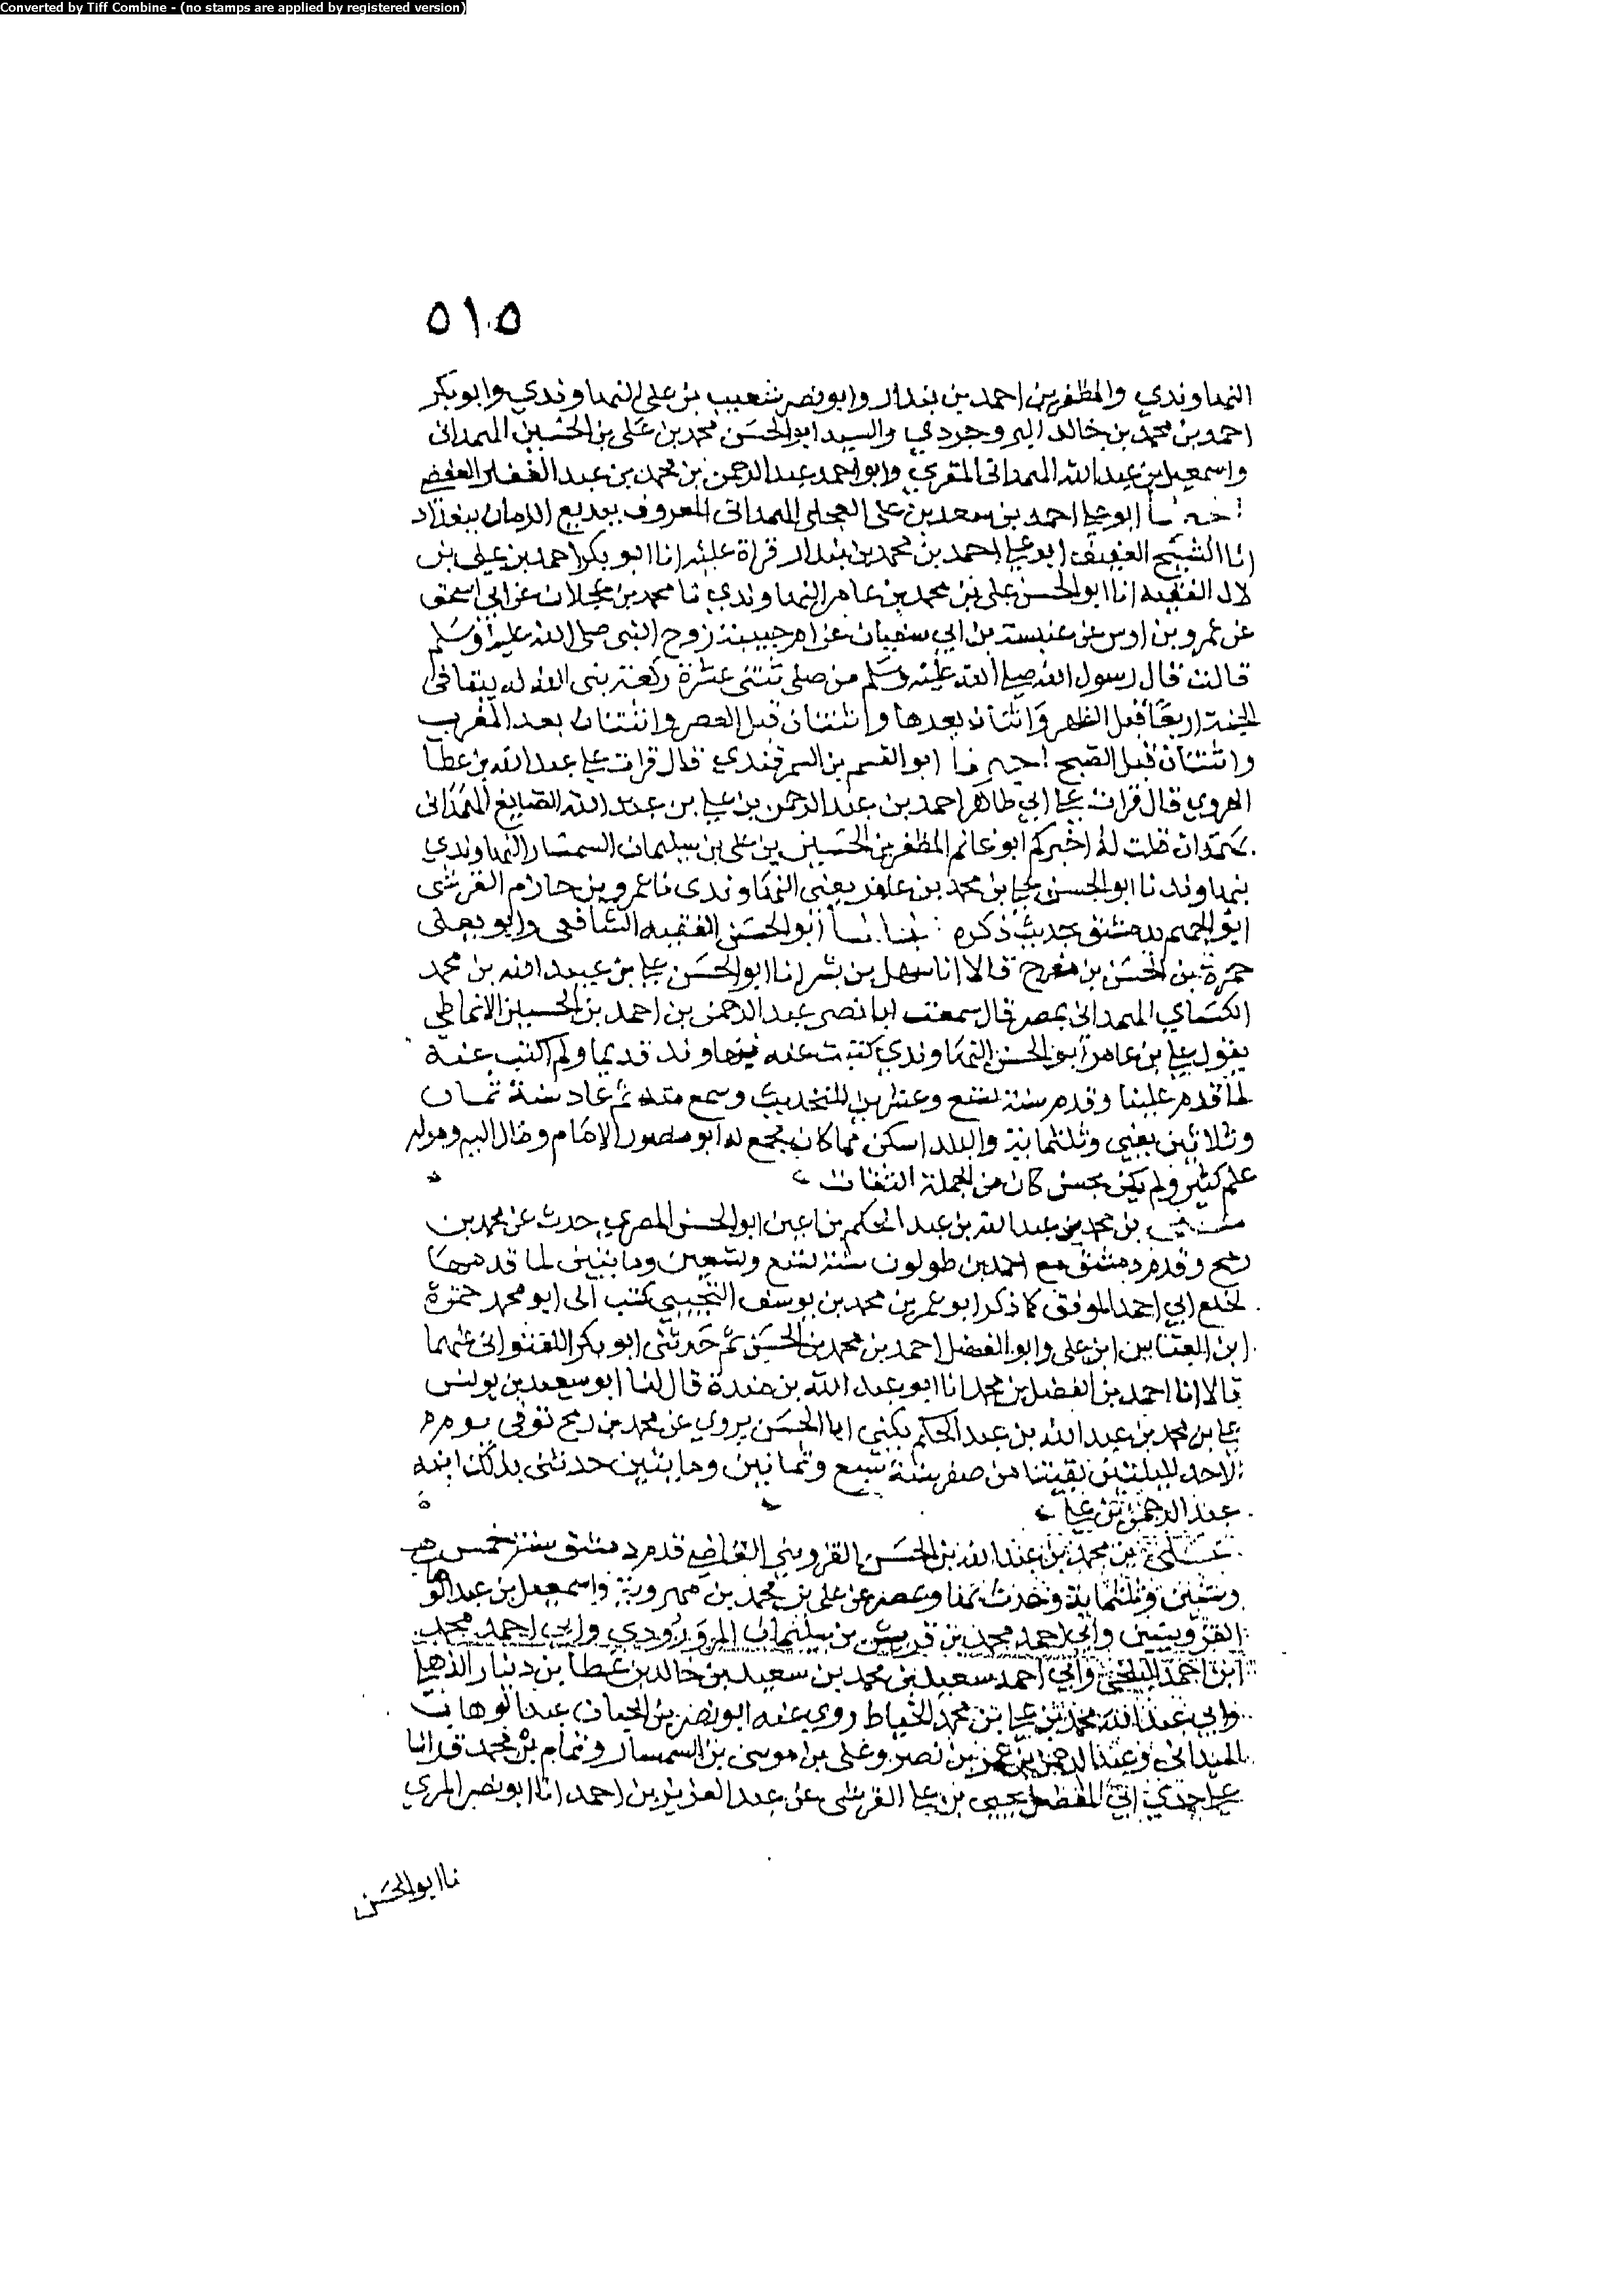 Converted by Tiff Combine - (no stamps are applied by registered version)
٥١٥
النهاوندي والمظفر بن احمد بن بندار وابو نصر شعيب بن على النهاوندي وابو بكر
احمد بن محمد بن خالد البروجردي والسيد ابو الحسن محمد بن على بن الحسين الهمدانى
واسمعيل بن عبد الله الهمدانى المقري وابو احمد عبد الرحمن بن محمد بن عبد الغفار
ابو علي احمد بن سعد بن على العجلى الهمدانى المعروف ببديع الزمان ببغداد
انا الشيخ العفيف ابو علي احمد بن محمد بن بندار قراة عليه انا ابو بكر احمد بن على بن
لال الفقيه انا ابو الحسن على بن محمد بن عامر النهاوندي نا محمد بن عجلان عن ابي اسحق
عن عمرو بن اوس عن عنبسة بن ابي سفيان عن ام حبيبة زوج النبى صلى الله عليه وسلم
قالت قال رسول الله صلى الله عليه وسلم من صلى ثنتى عشرة ركعة بنى الله له بيتا فى
الجنة اربعا قبل الظهر واثنتان بعدها واثنتان قبل العصر واثنتان بعد المغرب
واثنتان قبل الصبح اخبرنا ابو القسم بن السمرقندي قال قرات على عبد الله بن عطا
الهروي قال قرات على ابي طاهر احمد بن عبد الرحمن بن على بن عبد الله الصايغ الهمدانى
بهمدان قلت له اخبركم ابو غانم المظفر بن الحسين بن على بن سليمان السمسار النهاوندي
بنهاوند نا ابو الحسن على بن محمد بن عامر يعنى النهاوندى نا عمرو بن حازم القرشى
ابو الجهم بدمشق بحديث ذكره انبانا ابو الحسن الفقيه الشافعى وابو يعلى
حمزة بن الحسن بن مفرج قالا انا سهل بن بشر انا ابو الحسن على بن عبيد الله بن محمد
الكساي الهمدانى بمصر قال سمعت ابا نصر عبد الرحمن بن احمد بن الحسين الانماطي
يقول على بن عامر ابو الحسن النهاوندي كتبت عنه بنهاوند قديما ولم اكتب عنه
لما قدم علينا وقدم سنة تسع وعشرين للتحديث وسمع منه ثم عاد سنة ثمان
وثلاثين يعنى وثلثماية والبلد اسكن مما كان يجمع له ابو منصور الامام وقال اليه ومولد
علم كثير ولم يكن بحسن كان من الجملة الثقات
بن محمد بن عبد الله بن عبد الحكم بن اعين ابو الحسن المصري حدث عن محمد بن
رمح وقدم دمشق مع احمد بن طولون سنة تسع وستين ومايتين لما قدمها
لخلع ابي احمد الموفق كما ذكر ابو عمر بن محمد بن يوسف التجيبي كتب الى ابو محمد حمزة
ابن العباس ابن على وابو الفضل احمد بن محمد بن الحسن ثم حدثنى ابو بكر اللفتوانى عنهما
قالا انا احمد بن الفضل بن محمد انا ابو عبد الله بن مندة قال لنا ابو سعيد بن يونس
على بن محمد بن عبد الله بن عبد الحكم يكنى ابا الحسن يروي عن محمد بن رمح توفى يوم
الاحد لليلتين بقيتا من صفر سنة تسع وثمانين ومايتين حدثنى بذلك ابنه
عبد الرحمن بن على
على بن محمد بن عبد الله بن الحسن القزوينى القاضى قدم دمشق سنة خمس
وستين وثلثماية وحدث بها وبمصر عن على بن محمد بن مهروية واسمعيل بن عبد الوهاب
القزوينيين وابي احمد محمد بن قريش بن سليمان المروروذي وابي احمد محمد
ابن احمد البلخى وابي احمد سعيد بن محمد بن سعيد بن خالد بن عطا بن دينار
وابى عبد الله محمد بن على بن محمد الخياط روى عنه ابو نصر بن الجبان عبد الوهاب
الميدانى وعبد الرحمن بن عمر بن نصر وعلى بن موسى بن السمسار وتمام بن محمد قرانا
على جدي ابى المفضل يحيى بن على القرشى عن عبد العزيز بن احمد انا ابو نصر المري
نا ابو الحسن